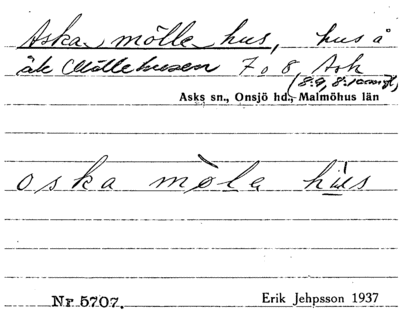 Aska mölle hus, hus å
äk Möllehusen 7 o 8 Ask
(8:9, 8:10 m.fl.)
Asks sn., Onsjö hd., Malmöhus län
oska mòla hus
Nr 5707.
Erik Jehpsson 1937